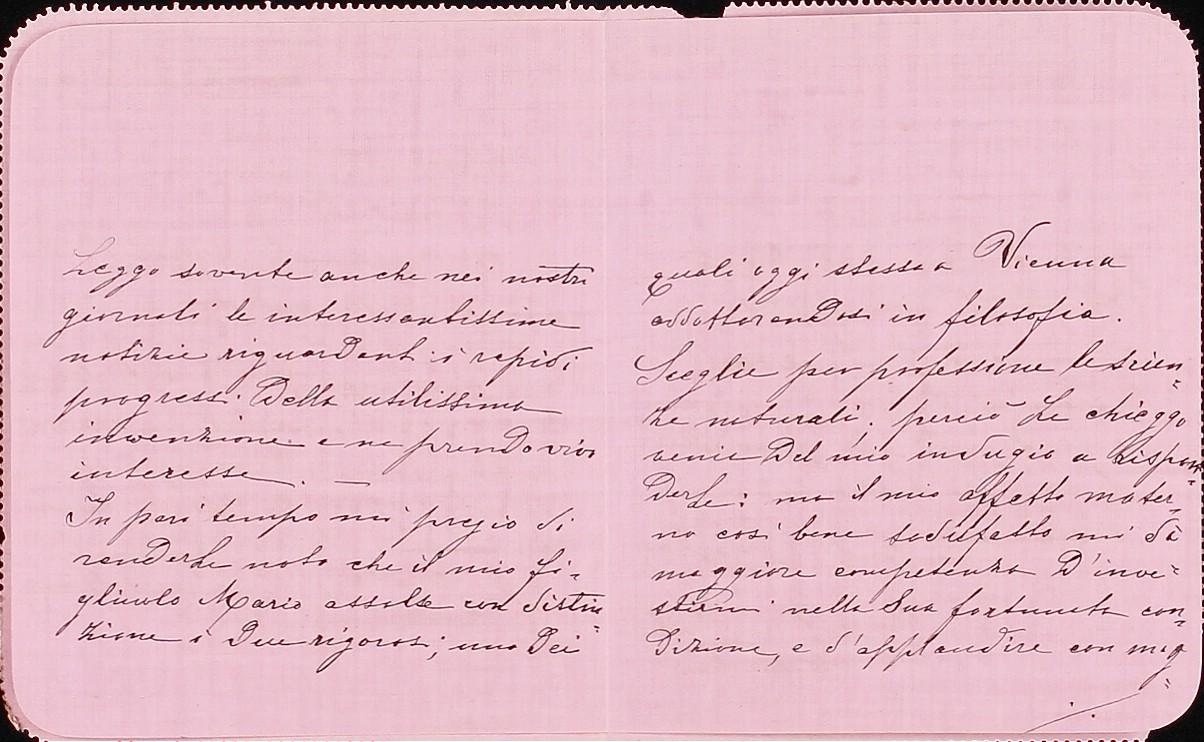 Leggo sovente anche nei nostri
giornali le interessantissime
notizie riguardanti i rapidi
progressi della utilissima
invenzione e ne prendo vivo
interesse. —
In pari tempo mi pregio di
renderLe noto che il mio fi-
gliuolo Mario assolse con distin-
zione i due rigorosi; uno dei
quali oggi stesso a Vienna
addottorandosi in filosofia.
Sceglie per professione le scien-
ze naturali. perciò Le chieggo
venia del mio indugio a rispon-
derLe: ma il mio affetto mater-
no così bene sodisfatto mi dà
maggiore competenza d'inve-
stirmi nella Sua fortunata con-
dizione, e d'applaudire con mag-
./.